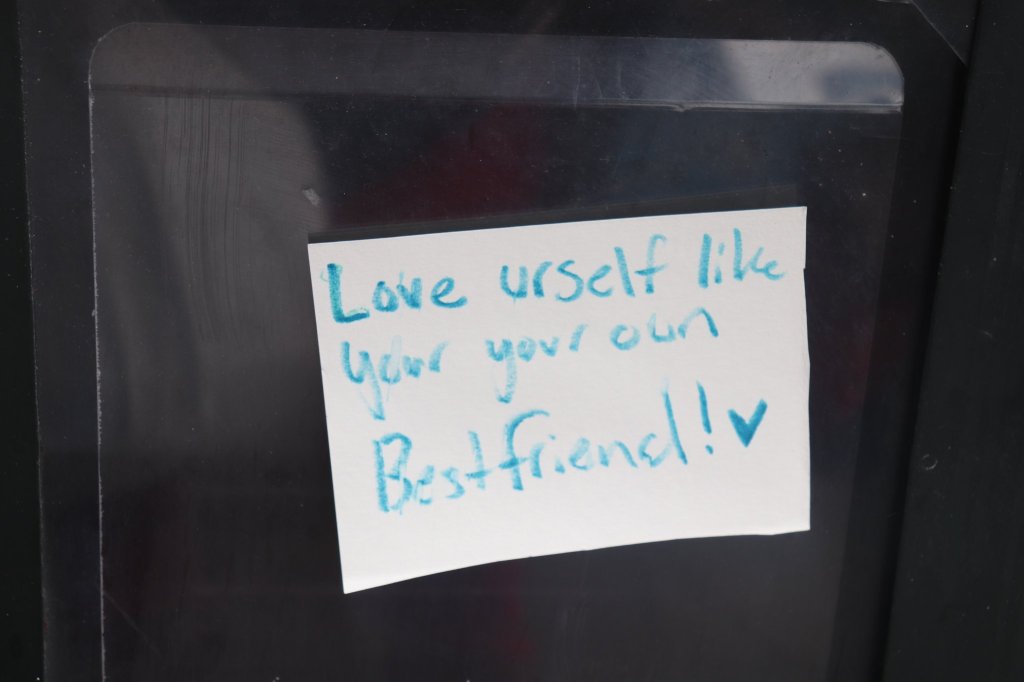 Love urself like
your your own
Bestfriend! ♥